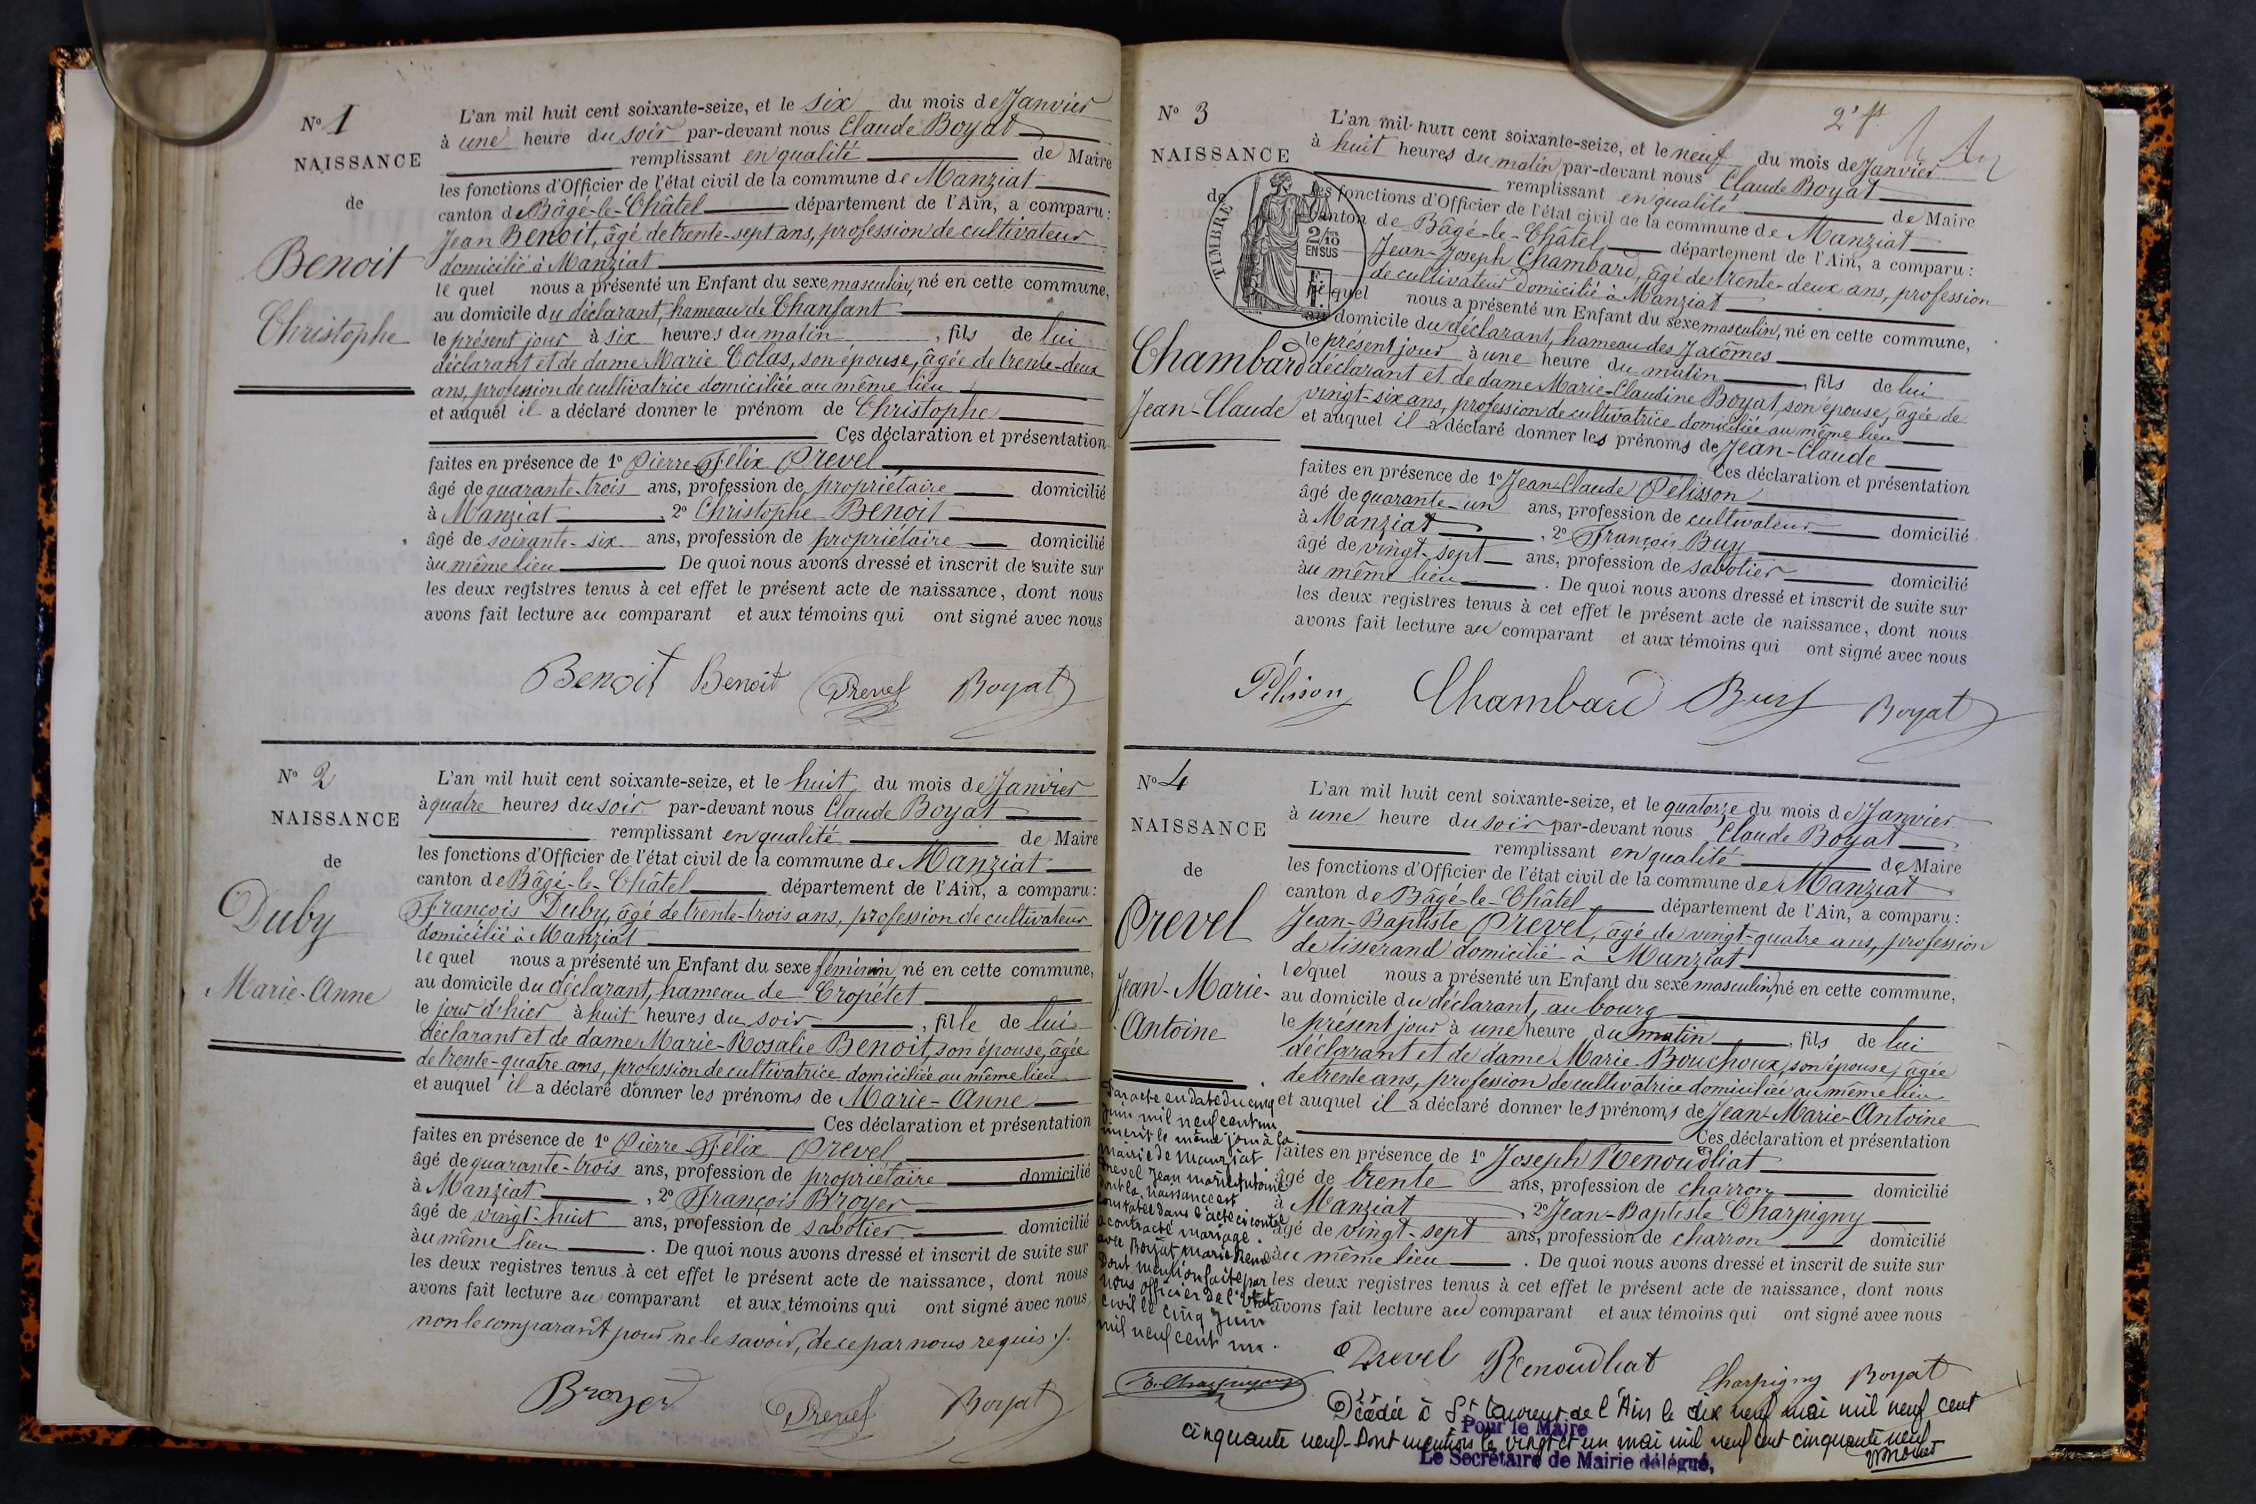 N° 1
NAISSANCE
de
Benoit
Christophe
L'an mil huit cent soixante-seize, et le six du mois de Janvier
à une heure du soir par-devant nous Claude Boyat
remplissant en qualité de Maire
les fonctions d'Officier de l'état civil de la commune de Manziat
canton de Bâgé-le-Châtel département de l'Ain, a comparu :
Jean Benoit, âgé de trente-sept ans, profession de cultivateur
domicilié à Manziat
le quel nous a présenté un Enfant du sexe masculin, né en cette commune,
au domicile du déclarant, hameau de Chanfant
le présent jour à six heures du matin, fils de lui
déclarant et de dame Marie Colas, son épouse, âgée de trente-deux
ans, profession de cultivatrice domiciliée au même lieu
et auquel il a déclaré donner le prénom de Christophe
Ces déclaration et présentation
faites en présence de 1° Pierre Félix Prevel
âgé de quarante-trois ans, profession de propriétaire domicilié
à Manziat, 2° Christophe Benoit
âgé de soixante-six ans, profession de propriétaire domicilié
au même lieu. De quoi nous avons dressé et inscrit de suite sur
les deux registres tenus à cet effet le présent acte de naissance, dont nous
avons fait lecture au comparant et aux témoins qui ont signé avec nous
Benoit Benoit Prevel Boyat
N° 2
NAISSANCE
de
Duby
Marie-Anne
L'an mil huit cent soixante-seize, et le huit du mois de Janvier
à quatre heures du soir par-devant nous Claude Boyat
remplissant en qualité de Maire
les fonctions d'Officier de l'état civil de la commune de Manziat
canton de Bâgé-le-Châtel département de l'Ain, a comparu :
François Duby, âgé de trente-trois ans, profession de cultivateur
domicilié à Manziat
le quel nous a présenté un Enfant du sexe féminin, né en cette commune,
au domicile du déclarant, hameau de Cropétet
le jour d'hier à huit heures du soir, fille de lui
déclarant et de dame Marie-Rosalie Benoit, son épouse, âgée
de trente-quatre ans, profession de cultivatrice domiciliée au même lieu
et auquel il a déclaré donner les prénoms de Marie-Anne
Ces déclaration et présentation
faites en présence de 1° Pierre Félix Prevel
âgé de quarante-trois ans, profession de propriétaire domicilié
à Manziat, 2° François Broyer
âgé de vingt-huit ans, profession de sabotier domicilié
au même lieu. De quoi nous avons dressé et inscrit de suite sur
les deux registres tenus à cet effet le présent acte de naissance, dont nous
avons fait lecture au comparant et aux témoins qui ont signé avec nous
non le comparant pour ne le savoir, de ce par nous requis ./.
Broyer Prevel Boyat
2e ft
N° 3
NAISSANCE
de
TIMBRE
2/10
EN SUS
Chambard
Jean-Claude
L'an mil huit cent soixante-seize, et le neuf du mois de Janvier
à huit heures du matin par-devant nous Claude Boyat
remplissant en qualité de Maire
les fonctions d'Officier de l'état civil de la commune de Manziat
canton de Bâgé-le-Châtel département de l'Ain, a comparu :
Jean-Joseph Chambard, âgé de trente-deux ans, profession
de cultivateur domicilié à Manziat
le quel nous a présenté un Enfant du sexe masculin, né en cette commune,
au domicile du déclarant, hameau des Jacômes
le présent jour à une heure du matin, fils de lui
déclarant et de dame Marie-Claudine Boyat, son épouse, âgée de
vingt-six ans, profession de cultivatrice domiciliée au même lieu
et auquel il a déclaré donner les prénoms de Jean-Claude
Ces déclaration et présentation
faites en présence de 1° Jean-Claude Pelisson
âgé de quarante-un ans, profession de cultivateur domicilié
à Manziat, 2° François Buy
âgé de vingt-sept ans, profession de sabotier domicilié
au même lieu. De quoi nous avons dressé et inscrit de suite sur
les deux registres tenus à cet effet le présent acte de naissance, dont nous
avons fait lecture au comparant et aux témoins qui ont signé avec nous
Pélisson Chambard Buy Boyat
N° 4
NAISSANCE
de
Prevel
Jean-Marie-
Antoine
L'an mil huit cent soixante-seize, et le quatorze du mois de Janvier
à une heure du soir par-devant nous Claude Boyat
remplissant en qualité de Maire
les fonctions d'Officier de l'état civil de la commune de Manziat
canton de Bâgé-le-Châtel département de l'Ain, a comparu :
Jean-Baptiste Prevel, âgé de vingt-quatre ans, profession
de tisserand domicilié à Manziat
le quel nous a présenté un Enfant du sexe masculin, né en cette commune,
au domicile du déclarant, au bourg
le présent jour à une heure du matin, fils de lui
déclarant et de dame Marie Bouchoux, son épouse, âgée
de trente ans, profession de cultivatrice domiciliée au même lieu
et auquel il a déclaré donner les prénoms de Jean-Marie-Antoine
Ces déclaration et présentation
faites en présence de 1° Joseph Renoudliat
âgé de trente ans, profession de charron domicilié
à Manziat, 2° Jean-Baptiste Charpigny
âgé de vingt-sept ans, profession de charron domicilié
au même lieu. De quoi nous avons dressé et inscrit de suite sur
les deux registres tenus à cet effet le présent acte de naissance, dont nous
avons fait lecture au comparant et aux témoins qui ont signé avec nous
Prevel Renoudliat Charpigny Boyat
Par acte en date du cinq
Juin mil neuf cent un
inscrit le même jour à la
mairie de Manziat
Prevel Jean Marie Antoine
dont la naissance est
constatée dans l'acte ci contre
a contracté mariage
avec Boyat Marie
Dont mention faite par
nous officier de l'état
civil le cinq Juin
mil neuf cent un.
Décédé à St Laurent de l'Ain le dix neuf mai mil neuf cent
cinquante neuf. Dont mention le vingt et un mai mil neuf cent cinquante neuf
Pour le Maire
Le Secrétaire de Mairie délégué,